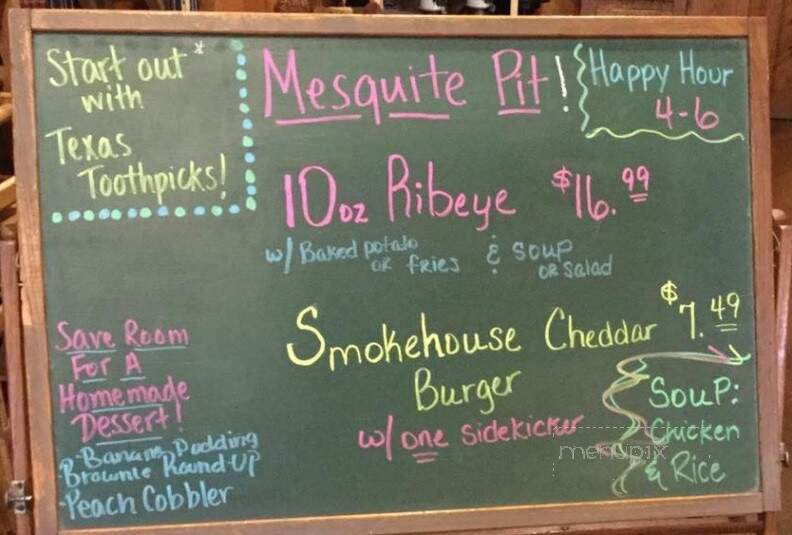 Start out*
with
Texas
Toothpicks!
Mesquite Pit!
Happy Hour
4-6
10oz Ribeye $16.99
w/ Baked potato
or fries
& soup
or salad
Smokehouse Cheddar $7.49
Burger
w/ one sidekicker
Save Room
For A
Homemade
Dessert!
-Banana Pudding
-Brownie Round-UP
-Peach Cobbler
Soup:
Chicken
& Rice
menupix